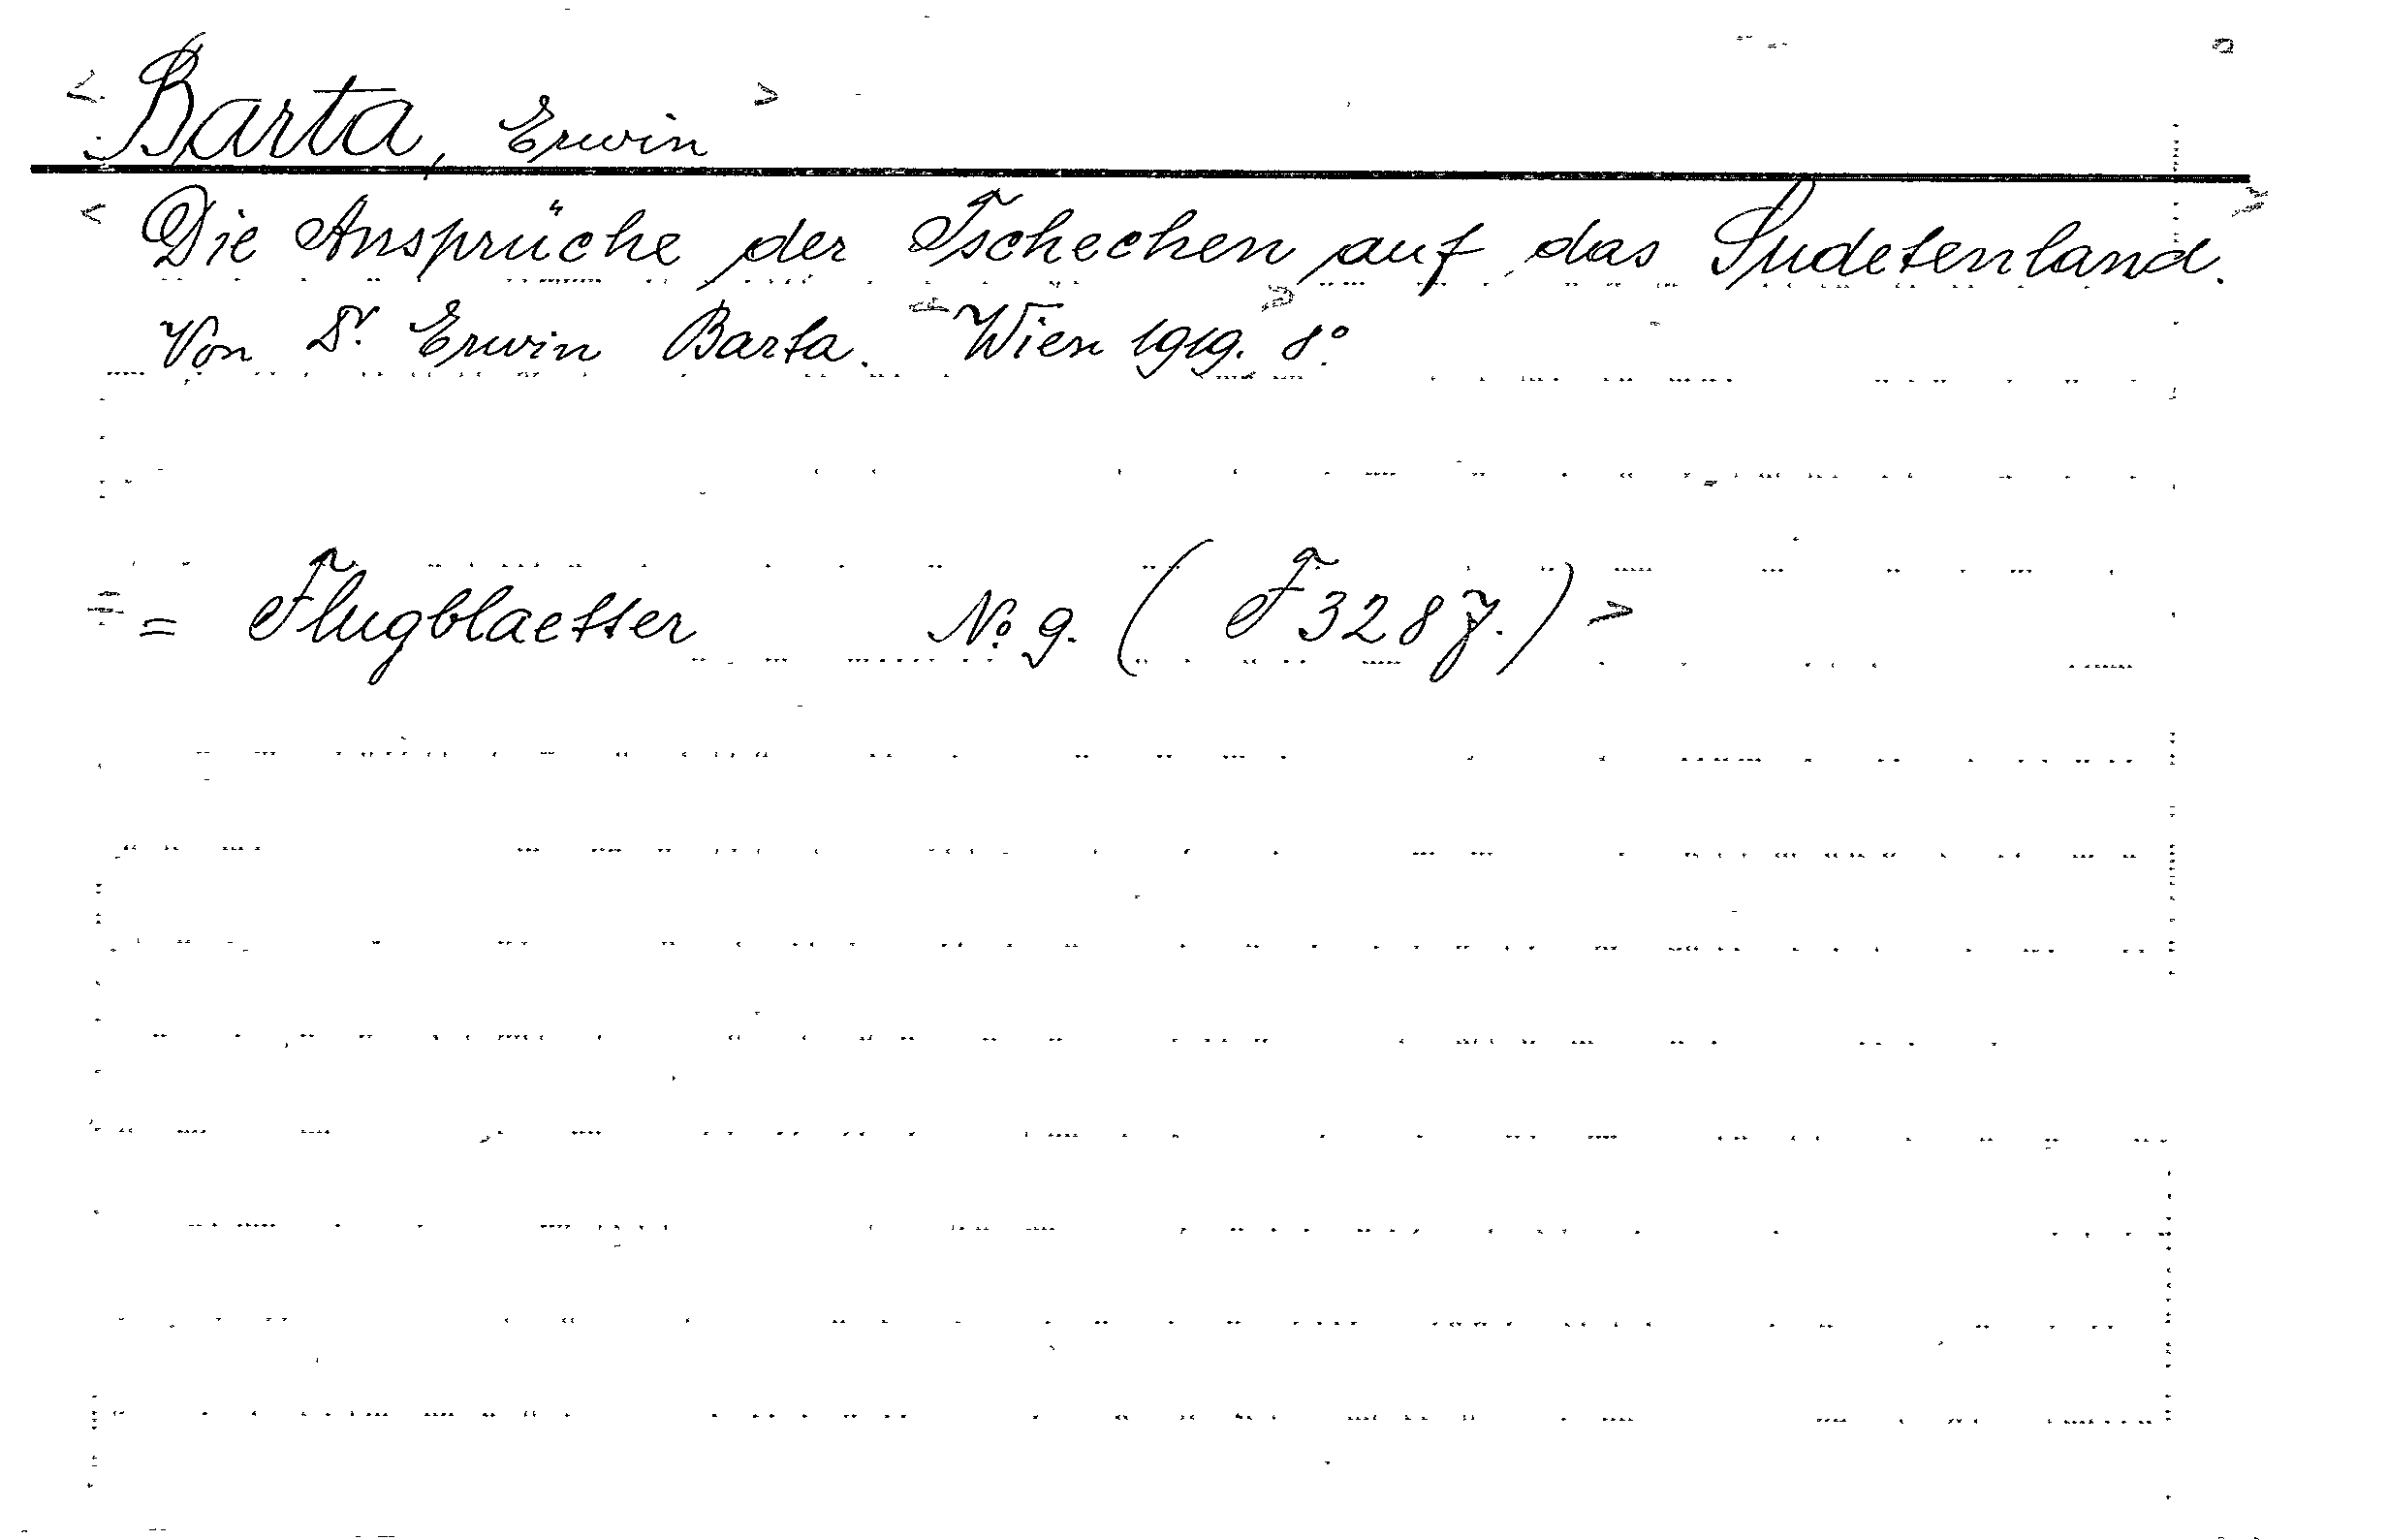 < Barta, Erwin >
< Die Ansprüche der Tschechen auf das Sudetenland. >
Von Dr. Erwin Barta. < Wien 1919. > 8º.
= Flugblaetter Nº 9. ( F 3287. ) >